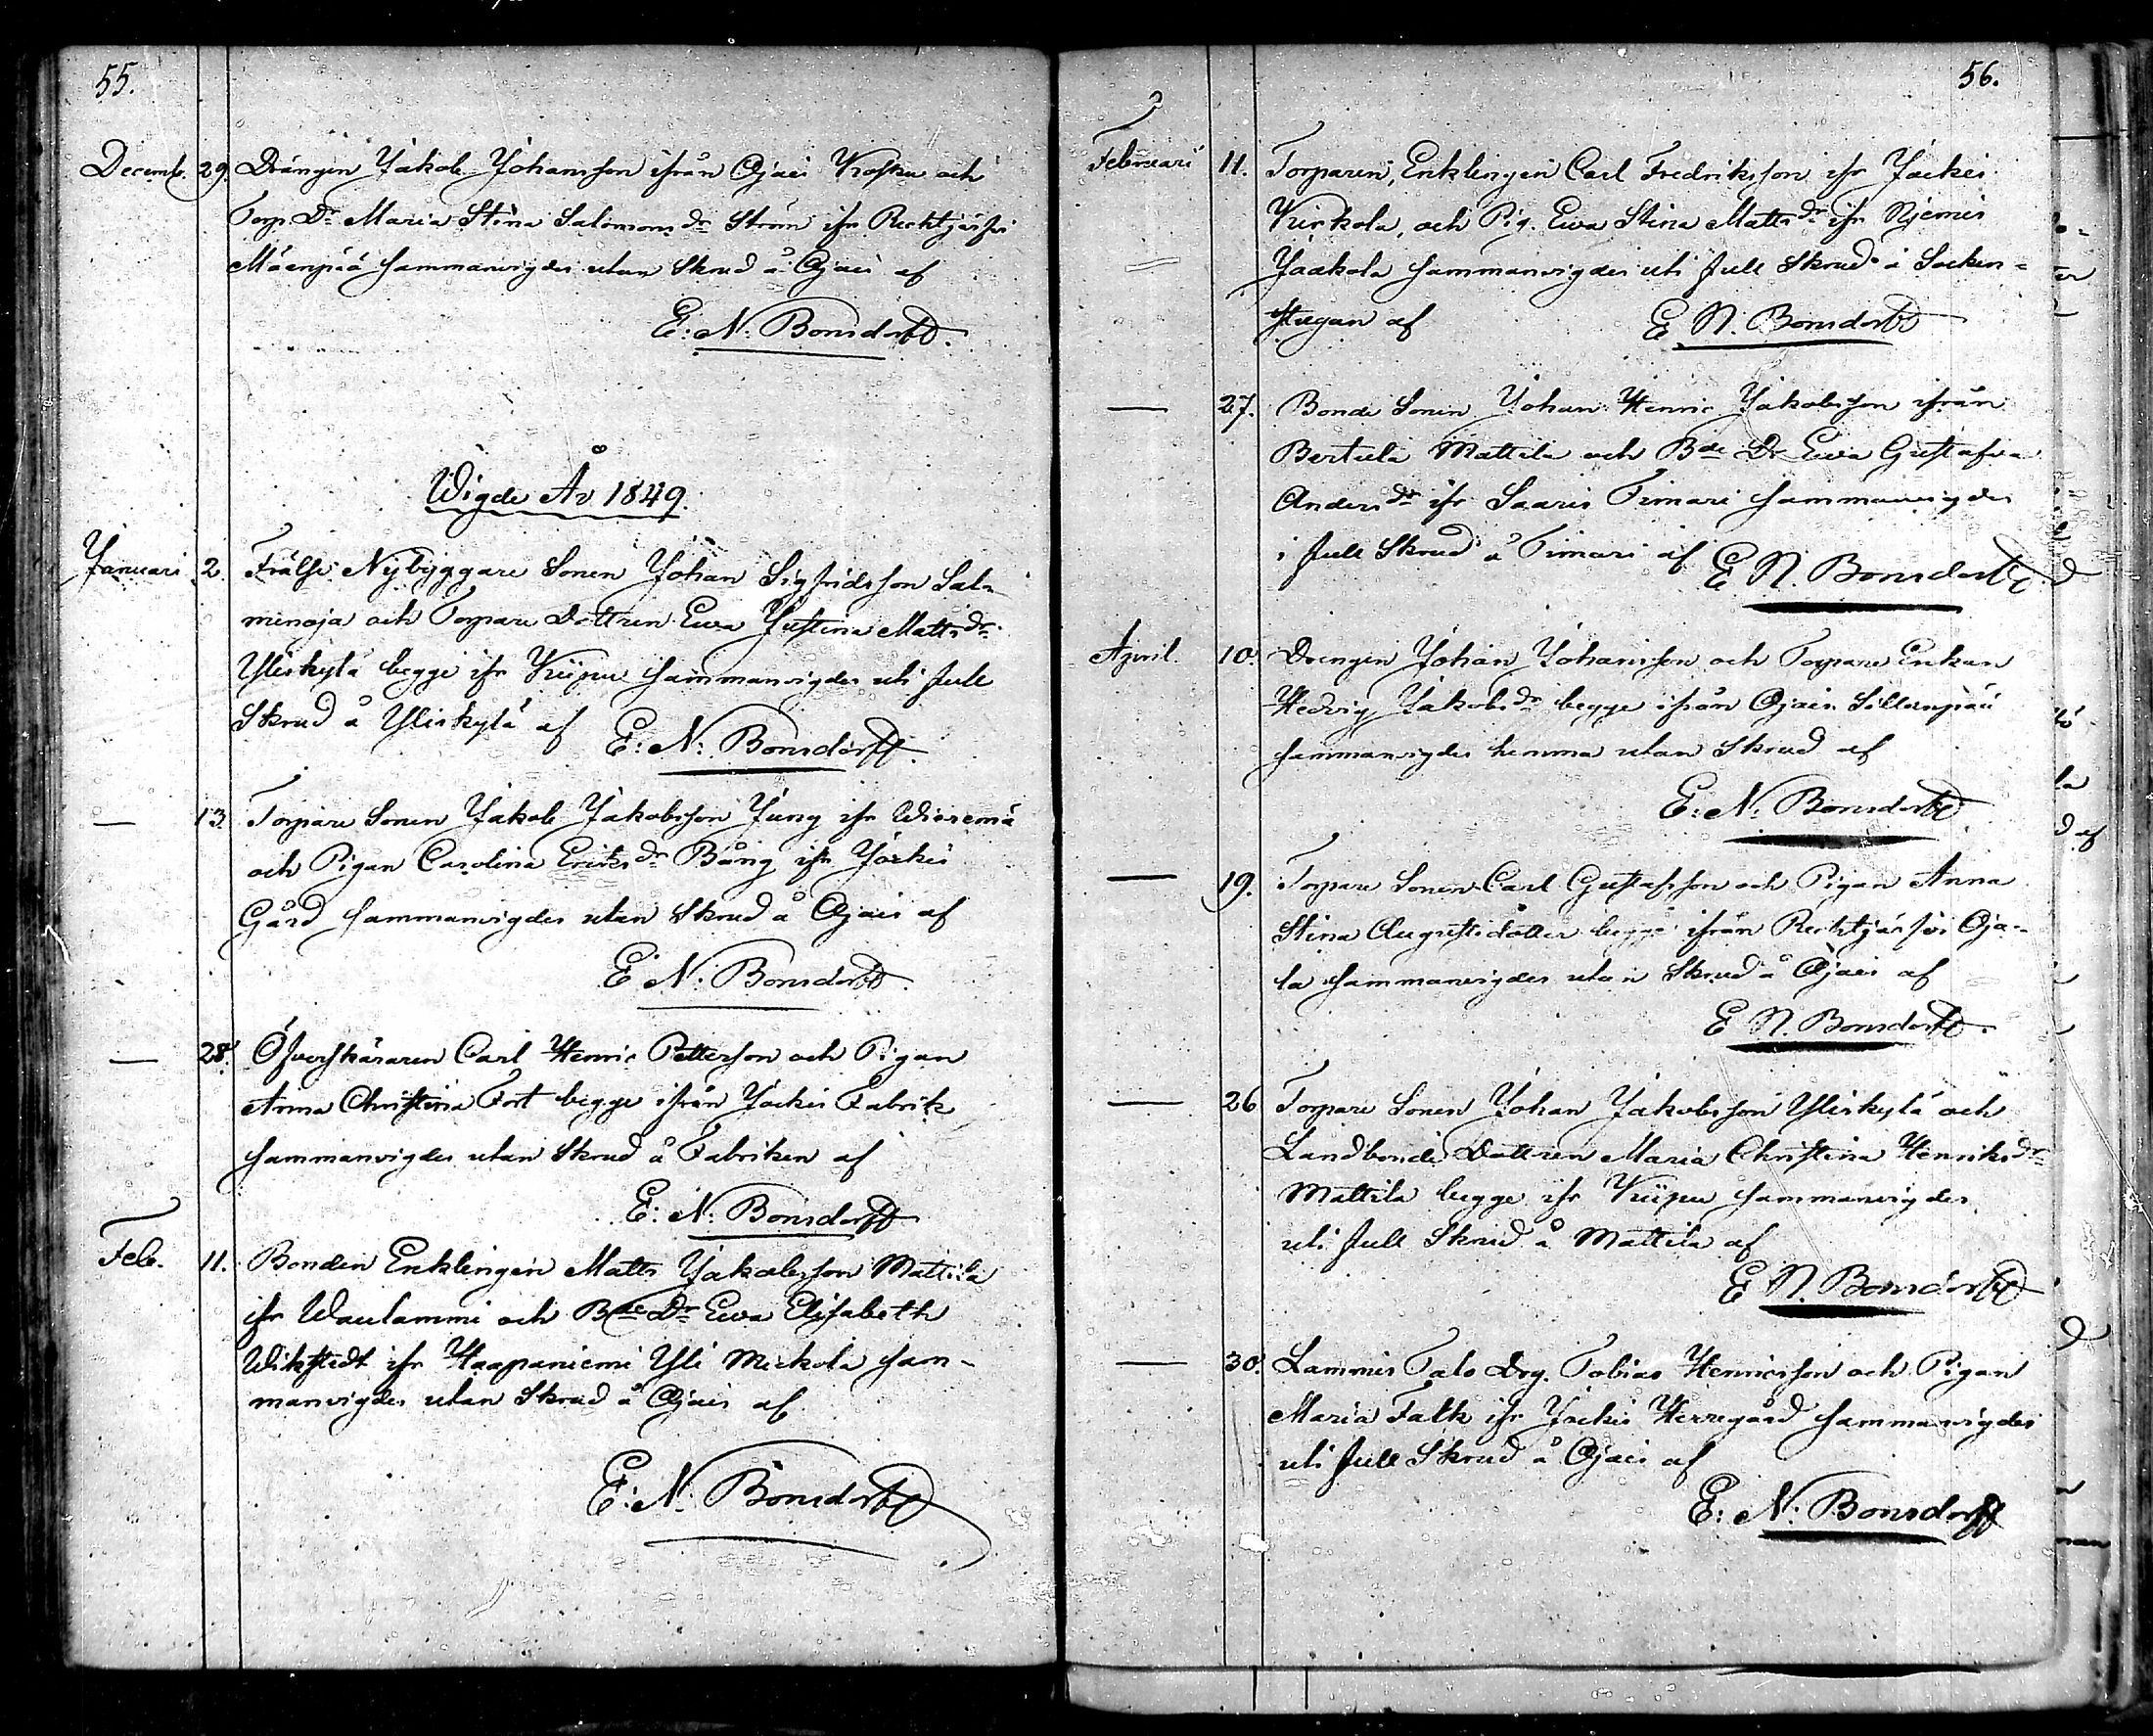 55.
Decemb. 29. Drängen Jakob Johansson ifrån Ojais Kosku och
Torp. Dr Maria Stina Salomonsdr Ström ifr Rechtijärfvi
Mäenpää sammanvigdes utan Skrud å Ojais af
E: N. Bonsdorff.
Wigde År 1849.
Januari 2. Frälse Nybyggare Sonen Johan Sigfridsson Sal-
minoja och Torpare Dottren Eva Justina Mattsdr
Yliskylä begge ifr Kuipu sammanvigdes uti full
Skrud å Yliskylä af E: N: Bonsdorff.
— 13. Torpare Sonen Jakob Jakobsson Jung ifr Wieremä
och Pigan Carolina Eriksdr Bång ifr Jockis
Gård sammanvigdes utan Skrud å Ojais af
E N: Bonsdorff.
— 28. Öfverskäraren Carl Henric Petterson och Pigan
Anna Christina Fort begge ifrån Jockis Fabrik
sammanvigdes utan Skrud å Fabriken af
E: N: Bonsdorff
Feb. 11. Bonden Enklingen Matts Jakobsson Mattila
ifr Waulammi och Bde Dr Eva Elisabeth
Wikstedt ifr Haapaniemi Yli Mickola sam-
manvigdes utan Skrud å Ojais af
E: N. Bonsdorff
56.
Februari 11. Torparen, Enklingen Carl Fredriksson ifr Jockis
Kirkola, och Pig. Eva Stina Mattsdr ifr Njemis
Jaakola sammanvigdes uti full Skrud i Socken-
stugan af E N. Bonsdorff
— 27. Bonde Sonen Johan Henric Jakobsson ifrån
Bertula Mattila och Bde Dr Eva Gustafva
Andersdr ifr Saaris Timari sammanvigdes
i full Skrud å Timari af E N. Bonsdorff
April. 10. Drengen Johan Johansson och Torpare Enkan
Hedvig Jakobsdr begge ifrån Ojais Sillanpää
sammanvigdes hemma utan Skrud af
E: N: Bonsdorff
— 19. Torpare Sonen Carl Gustafsson och Pigan Anna
Stina Augustsdotter begge ifrån Rechtijärfvi Oja-
la sammanvigdes utan Skrud å Ojais af
E N. Bonsdorff.
— 26 Torpare Sonen Johan Jakobsson Yliskylä och
Landbonde Dottren Maria Christina Henriksdr
Mattila begge ifr Kuipu sammanvigdes
uti full Skrud å Mattila af
E N. Bonsdorff
— 30. Lammis Talo Drg. Tobias Henricsson och Pigan
Maria Falk ifr Jockis Herregård sammanvigdes
uti full Skrud å Ojais af
E: N: Bonsdorff